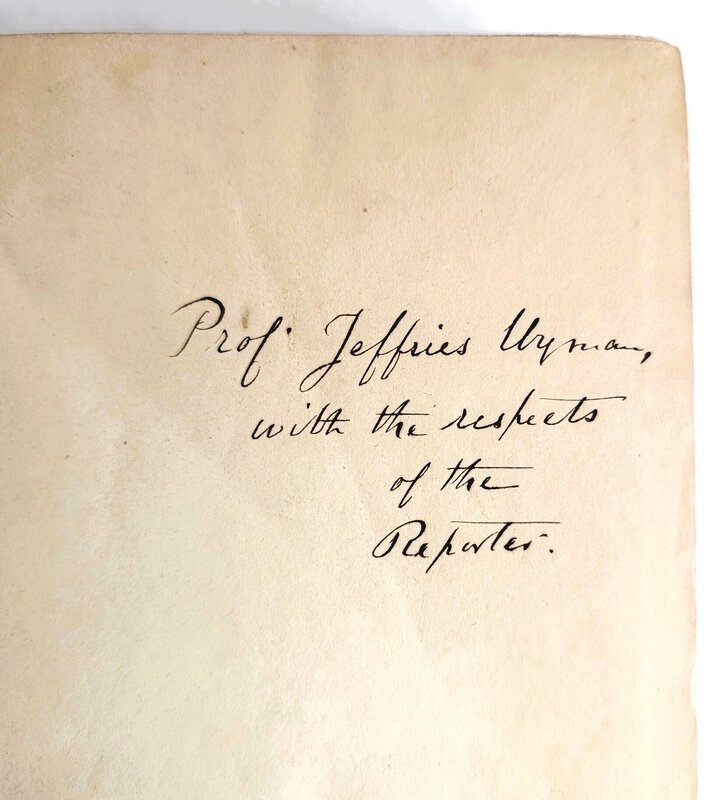 Prof. Jeffries Wyman,
with the respects
of the
Reporter.